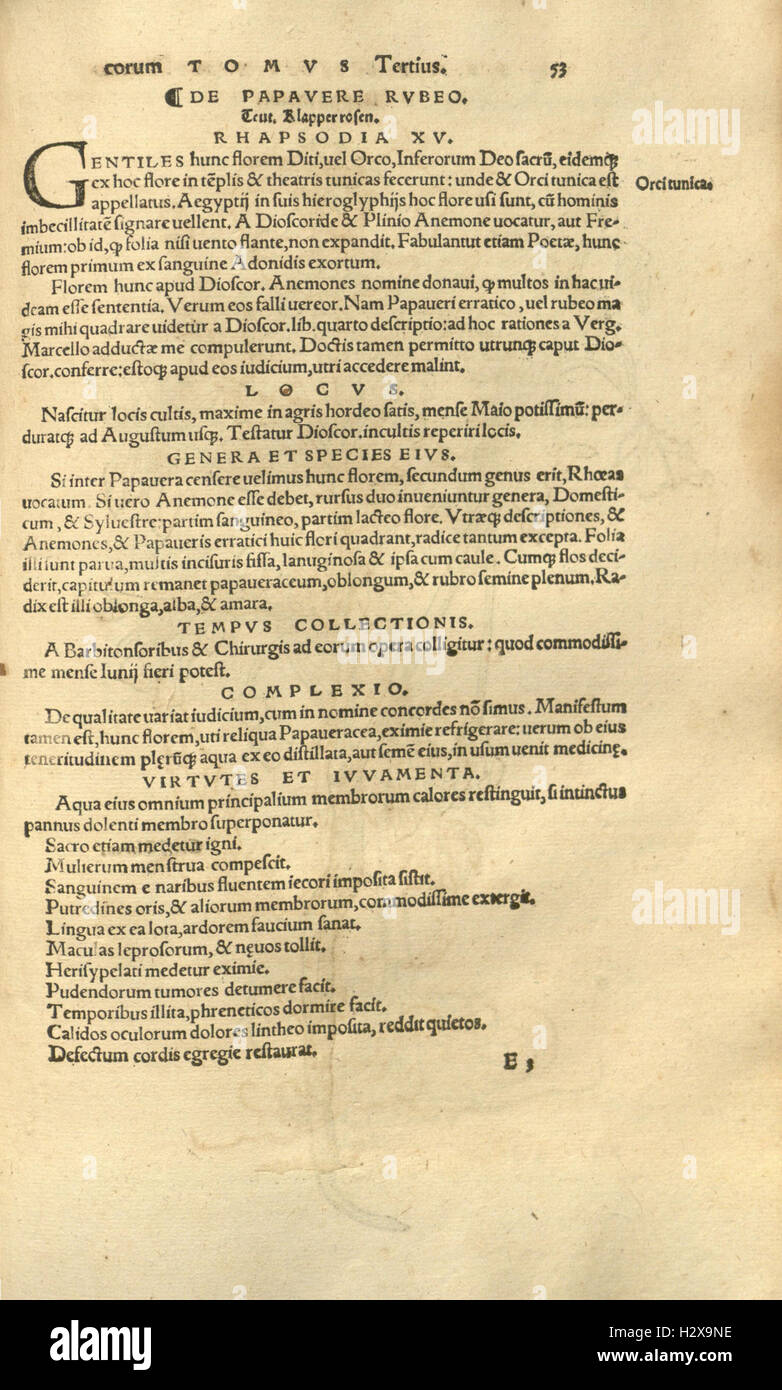 corum TOMVS Tertius. 53
¶DE PAPAVERE RVBEO.
Teut. Klapperrosen.
RHAPSODIA XV.
GENTILES hunc florem Diti, uel Orco, Inferorum Deo sacrũ, eidemq;
ex hoc flore in tẽplis & theatris tunicas fecerunt: unde & Orci tunica est
Orci tunica.
appellatus. Aegyptij in suis hieroglyphijs hoc flore usi sunt, cũ hominis
imbecillitatẽ signare uellent. A Dioscoride & Plinio Anemone uocatur, aut Fre-
mium: ob id, ꝙ folia nisi uento flante, non expandit. Fabulantut etiam Poetæ, hunc
florem primum ex sanguine Adonidis exortum.
Florem hunc apud Dioscor. Anemones nomine donaui, ꝙ multos in hac ui-
deam esse sententia. Verum eos falli uereor. Nam Papaueri erratico, uel rubeo ma
gis mihi quadrare uidetur a Dioscor. lib. quarto descriptio: ad hoc rationes a Verg.
Marcello adductæ me compulerunt. Doctis tamen permitto utrunq; caput Dio-
scor. conferre: estoq; apud eos iudicium, utri accedere malint.
LOCVS.
Nascitur locis cultis, maxime in agris hordeo satis, mense Maio potissimũ: per-
duratq; ad Augustum usq;. Testatur Dioscor. incultis reperiri locis.
GENERA ET SPECIES EIVS.
Si inter Papauera censere uelimus hunc florem, secundum genus erit, Rhœas
uocatum. Si uero Anemone esse debet, rursus duo inueniuntur genera, Domesti-
cum, & Syluestre: partim sanguineo, partim lacteo flore. Vtræq; descriptiones, &
Anemones, & Papaueris erratici huic flori quadrant, radice tantum excepta. Folia
illi sunt parua, multis incisuris fissa, lanuginosa & ipsa cum caule. Cumq; flos deci-
derit, capitulum remanet papaueraceum, oblongum, & rubro semine plenum. Ra-
dix est illi oblonga, alba, & amara.
TEMPVS COLLECTIONIS.
A Barbitonsoribus & Chirurgis ad eorum opera colligitur: quod commodissi-
me mense Iunij fieri potest.
COMPLEXIO.
De qualitate uariat iudicium, cum in nomine concordes nõ simus. Manifestum
tamen est, hunc florem, uti reliqua Papaueracea, eximie refrigerare: uerum ob eius
teneritudinem plęrũq; aqua ex eo distillata, aut semẽ eius, in usum uenit medicinę.
VIRTVTES ET IVVAMENTA.
Aqua eius omnium principalium membrorum calores restinguit, si intinctus
pannus dolenti membro superponatur.
Sacro etiam medetur igni.
Mulierum menstrua compescit.
Sanguinem e naribus fluentem iecori imposita sistit.
Putredines oris, & aliorum membrorum, commodissime extergit.
Lingua ex ea lota, ardorem faucium sanat.
Maculas leprosorum, & nęuos tollit.
Herisypelati medetur eximie.
Pudendorum tumores detumere facit.
Temporibus illita, phreneticos dormire facit.
Calidos oculorum dolores lintheo imposita, reddit quietos.
Defectum cordis egregie restaurat.
E 3
alamy
alamy
Image ID: H2X9NE
www.alamy.com